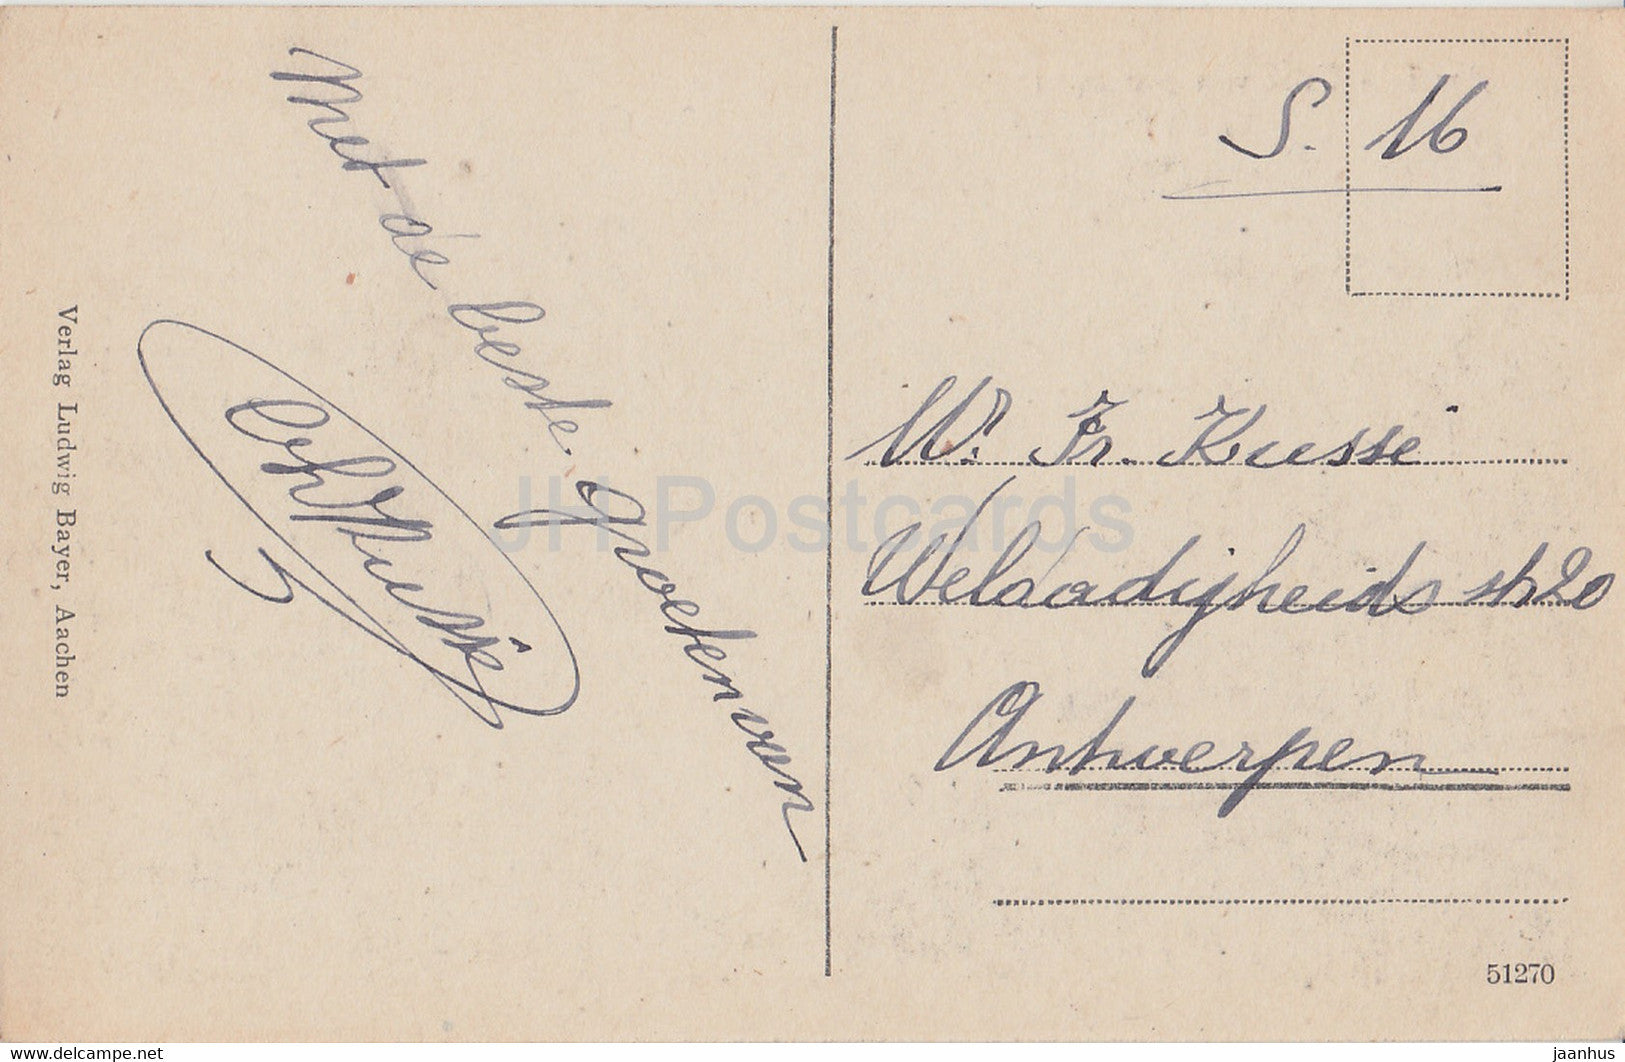 Met de beste groeten van
Verlag Ludwig Bayer, Aachen
S. 16
W. Fr. Kussé
Weldadigheids str 20
Antwerpen
51270
JH Postcards
www.delcampe.net
jaanhus